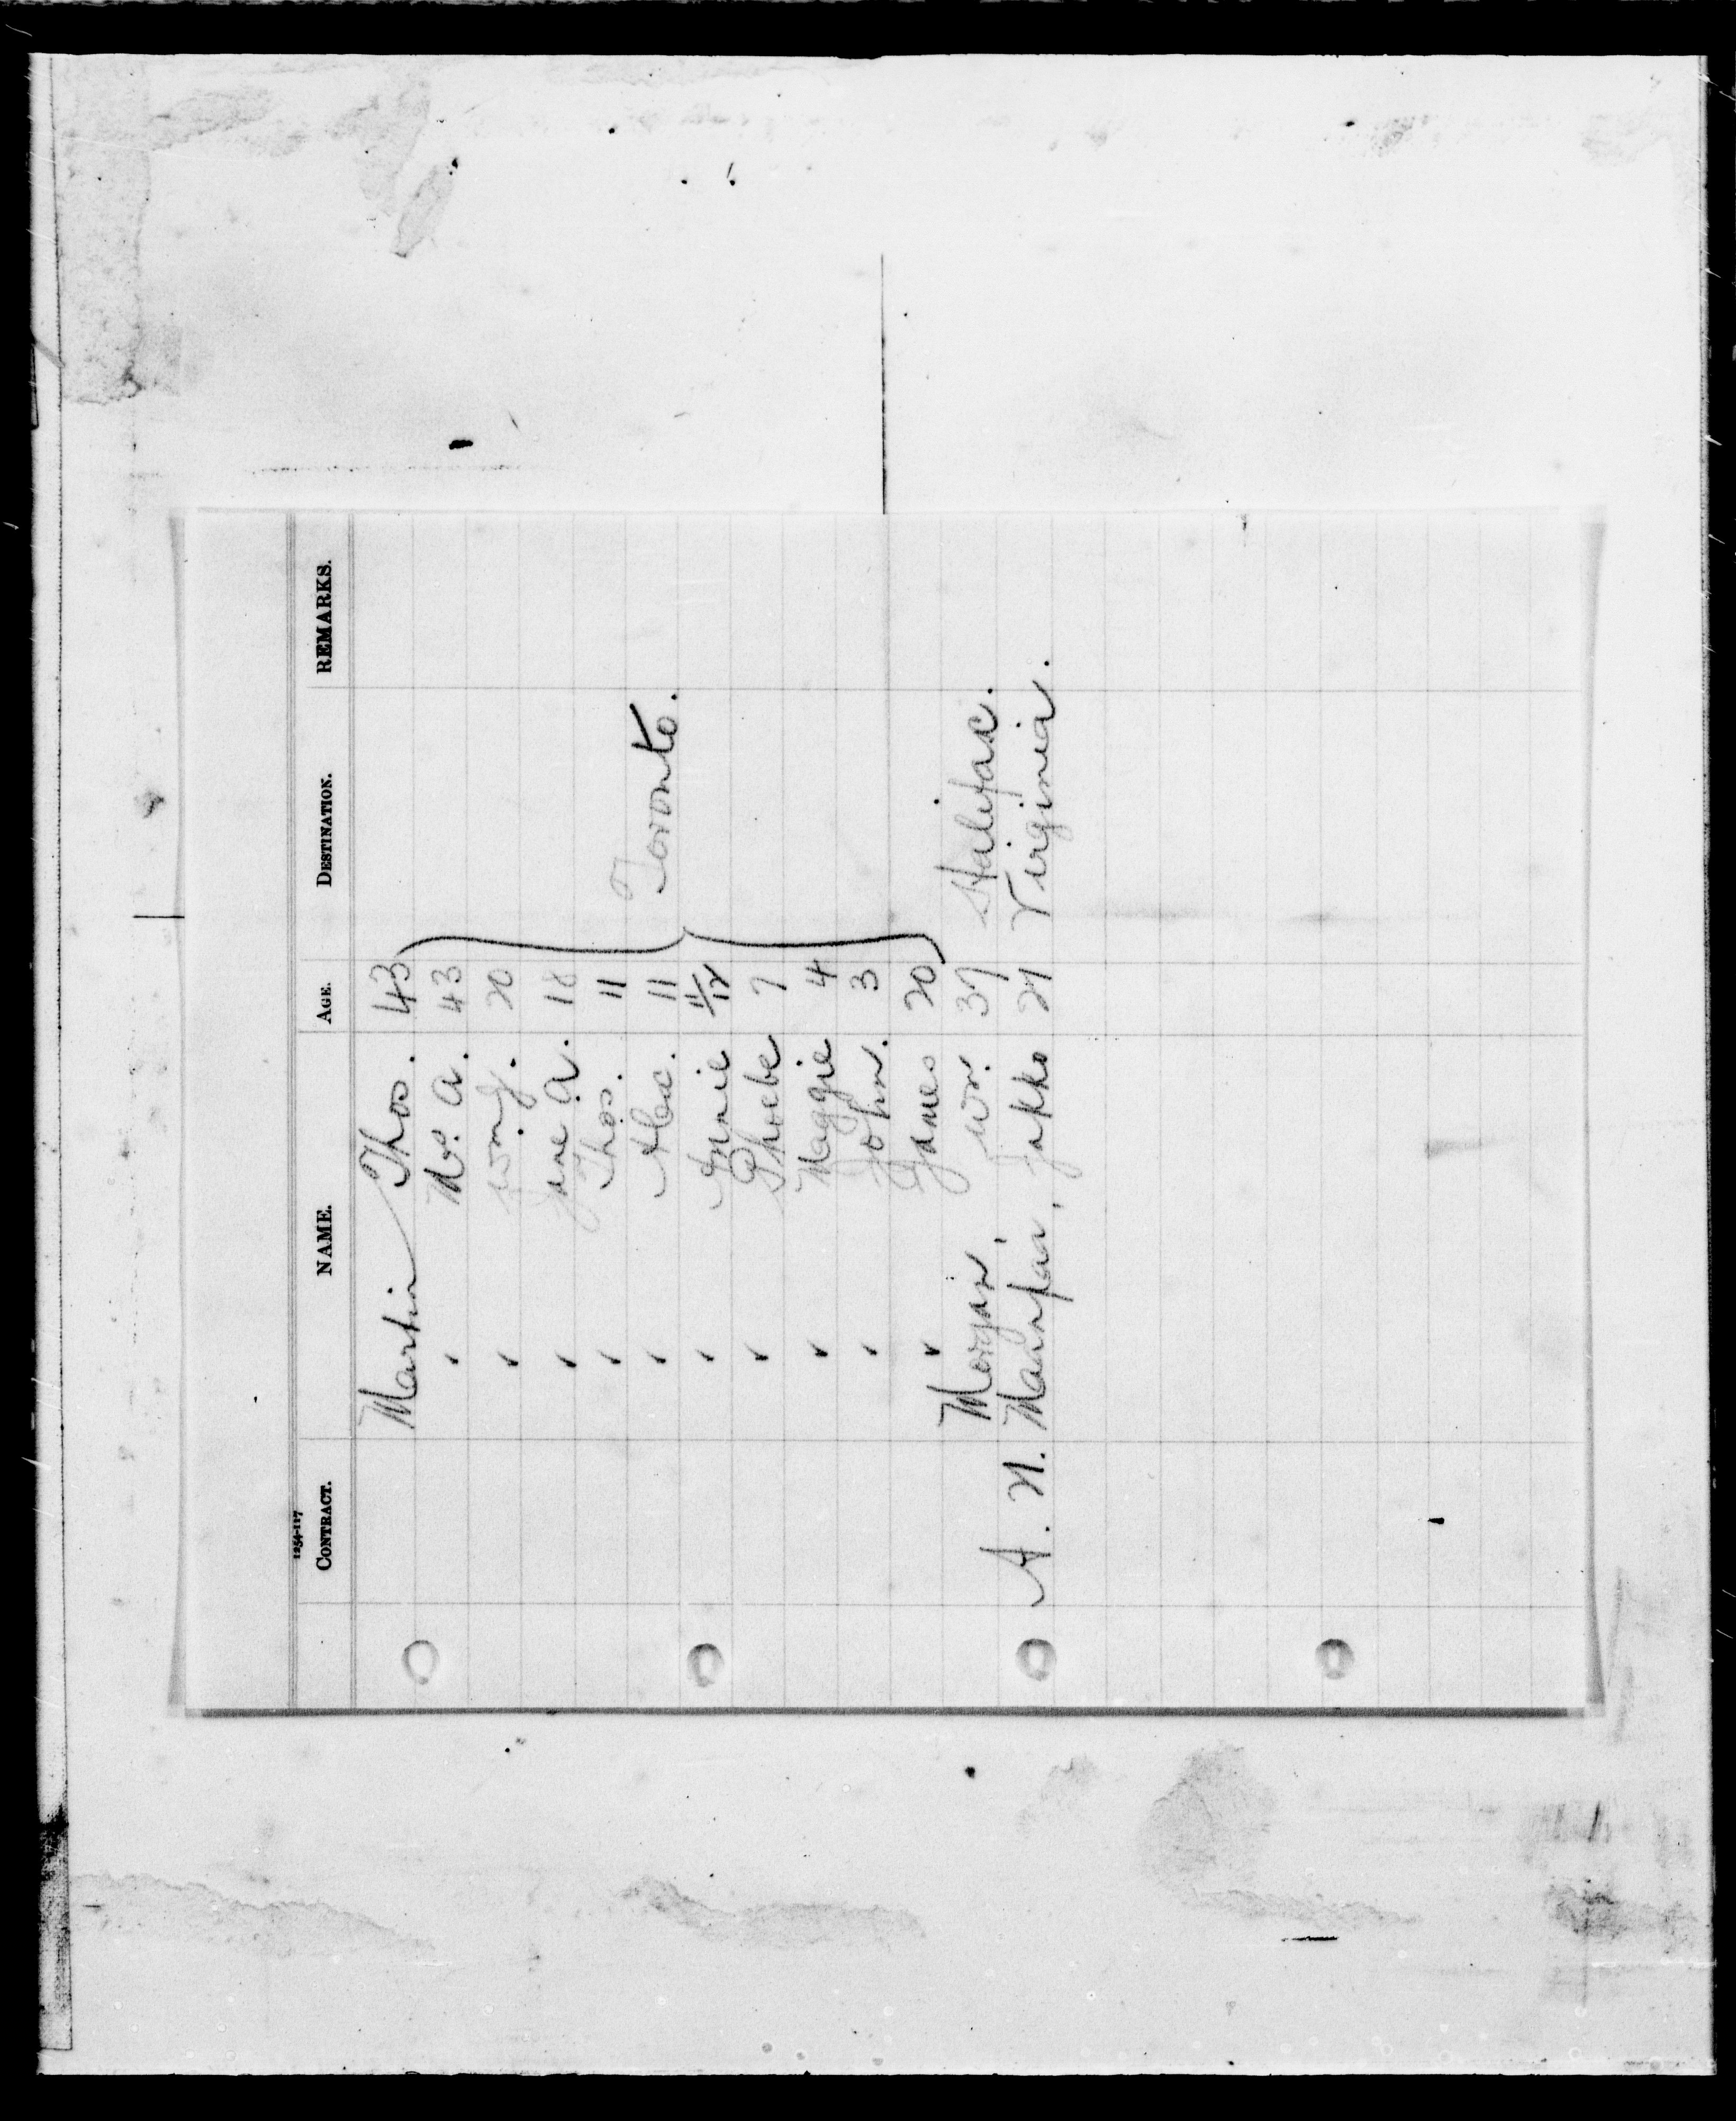 1254-117
CONTRACT. NAME. AGE. DESTINATION. REMARKS.
Martin Thos. 43
" Mrs. A. 43
" Wm J. 20
" Jane A. 18
" Thos. 11
" Alec. 11 Toronto.
" Annie 11/12
" Phoebe 7
" Maggie 4
" John. 3
" James 20
Morgan, Wm. 37 Halifax.
A. N. Manpaa, Jakko 27 Virginia.